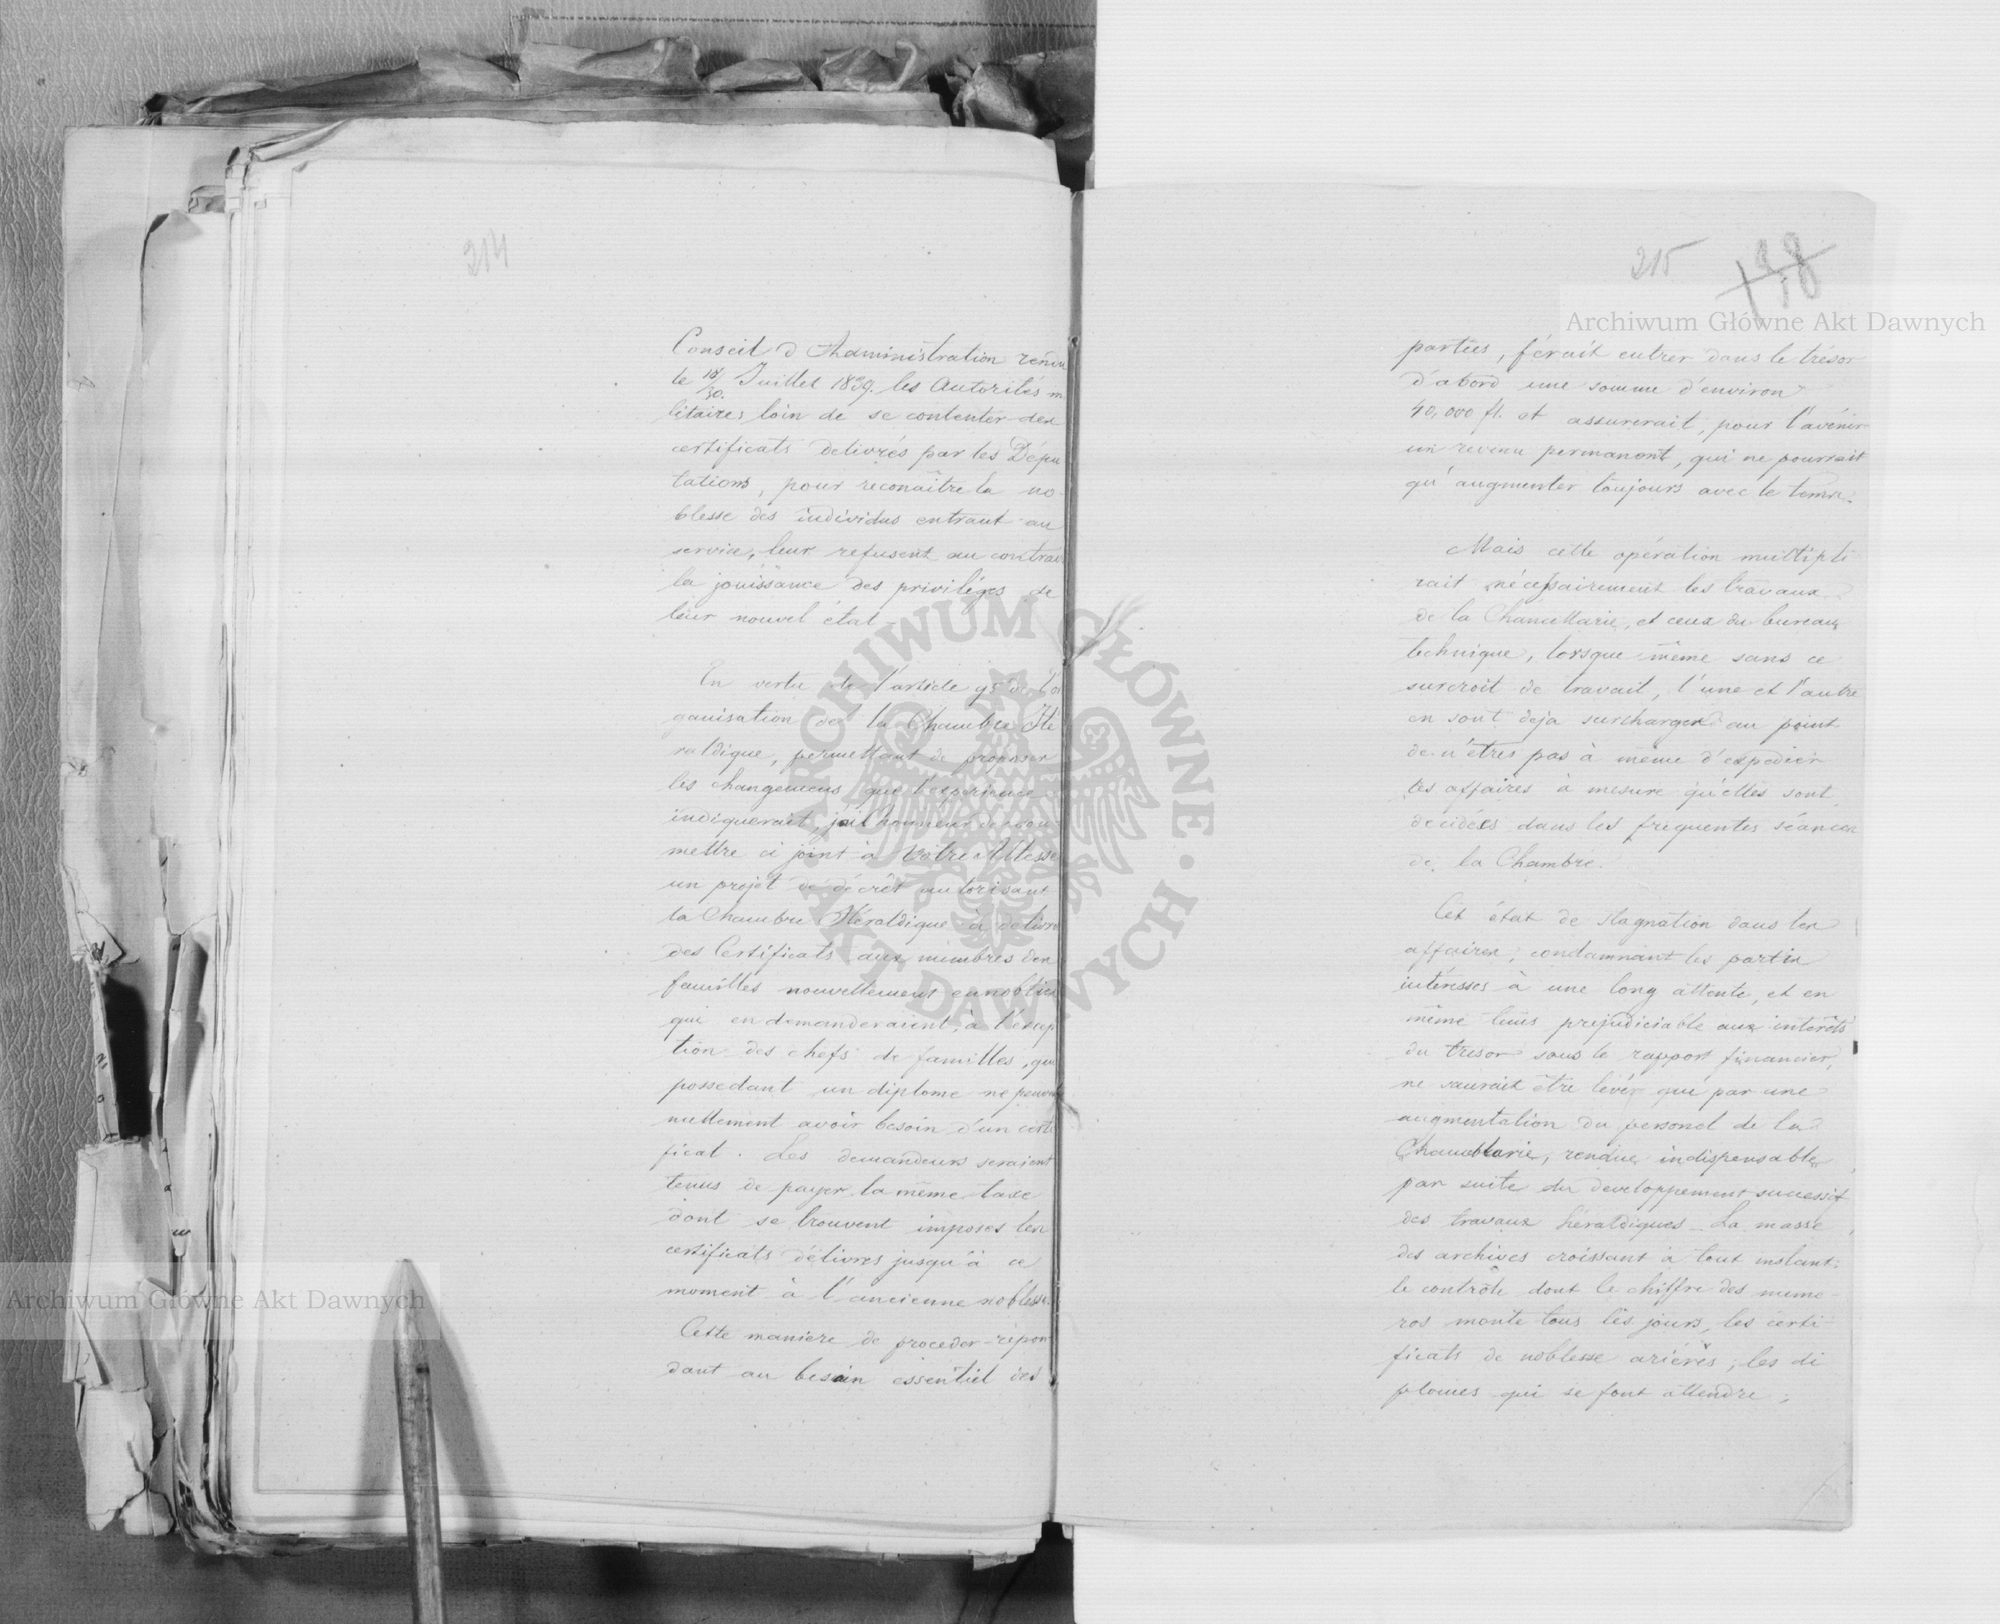 214
Conseil d'Administration rendu
le 18/30. Juillet 1839. les Autorités mi
litaires loin de se contenter des
certificats delivrés par les Dépu
tations, pour reconaître la no-
blesse des individus entrant au
service, leur refusent au contrai
la jouissance des priviléges de
leur nouvel état –
En vertu de l'article 95 de l'or
ganisation de la Chambre Hé
raldique, permettant de proposer
les changemens que l'expérience
indiquerait, j'ai l'honneur de sou
mettre ci joint à Votre Altesse
un projet de décrêt autorisant
la Chambre Héraldique à delivre
des Certificats aux membres des
familles nouvellement ennoblies
qui en demanderaient, à l'excep
tion des chefs de familles, qui
possedant un diplome ne peuvent
nullement avoir besoin d'un certi
ficat. Les demandeurs seraient
tenus de payer la même taxe
dont se trouvent imposés les
certificats délivres jusqu'à ce
moment à l'ancienne noblesse.
Cette maniere de proceder répon
dant au besoin essentiel des
215
198
parties, férait entrer dans le trésor
d'abord une somme d'environ
40,000 fl. et assurerait, pour l'avénir
un revenu permanent, qui ne pourrait
qu'augmenter toujours avec le tems.
Mais cette opération multipli
rait nécessairement les travaux
de la Chancellarie, et ceux du bureau
technique, lorsque même sans ce
surcroit de travail, l'une et l'autre
en sont deja surchargés au point
de n'êtres pas à même d'expedier
les affaires à mesure qu'elles sont
decidées dans les frequentes séances
de la Chambre.
Cet état de stagnation dans les
affaires, condamnant les parties
intéresses à une long attente, et en
même tems prejudiciable aux intérêts
du tresor sous le rapport financier,
ne saurait être levér que par une
augmentation du personel de la
Chancellarie, rendue indispensable
par suite du developpement successif
des travaux héraldiques – La masse
des archives croissant à tout instant;
le contrôle dont le chiffre des nume-
ros monte tous les jours, les certi-
ficats de noblesse ariérés; les di
plomes qui se font attendre;
Archiwum Główne Akt Dawnych
Archiwum Główne Akt Dawnych
ARCHIWUM GŁÓWNE · AKT DAWNYCH ·